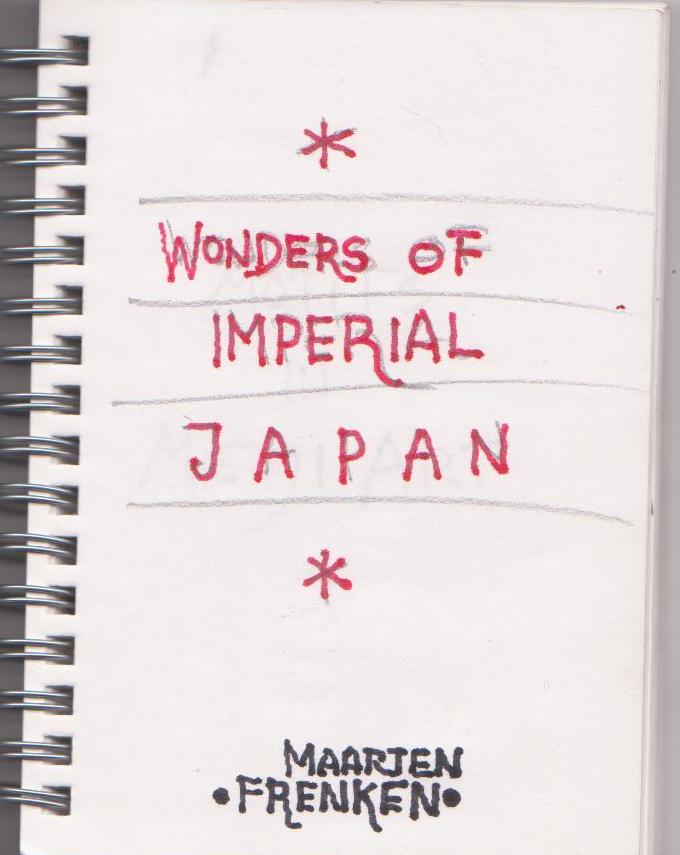 *
WONDERS OF
IMPERIAL
JAPAN
*
MAARTEN
•FRENKEN•